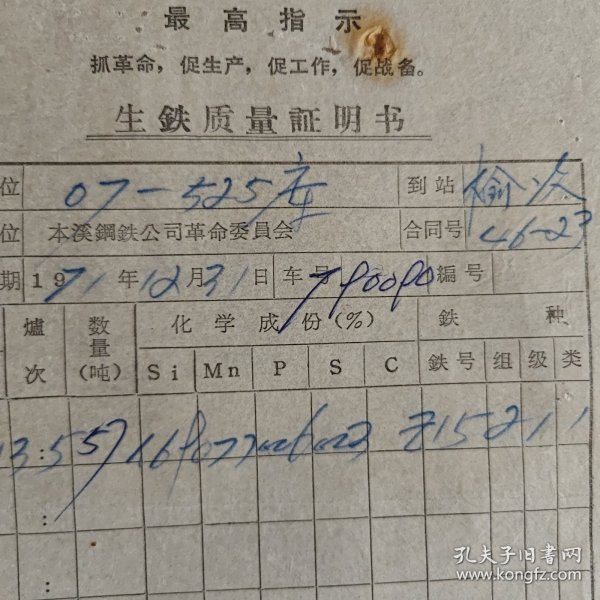 最高指示
抓革命，促生产，促工作，促战备。
生鉄质量証明书
位 07-525库 到站 榆次
位 本溪鋼鉄公司革命委員会 合同号 46-23
期 1971年12月31日 车号 編号
爐次 数量(吨) 化学成份(%) 鉄种
Si Mn P S C 鉄号 组 级 类
57 Z15 2 1 1
孔夫子旧书网
www.kongfz.com